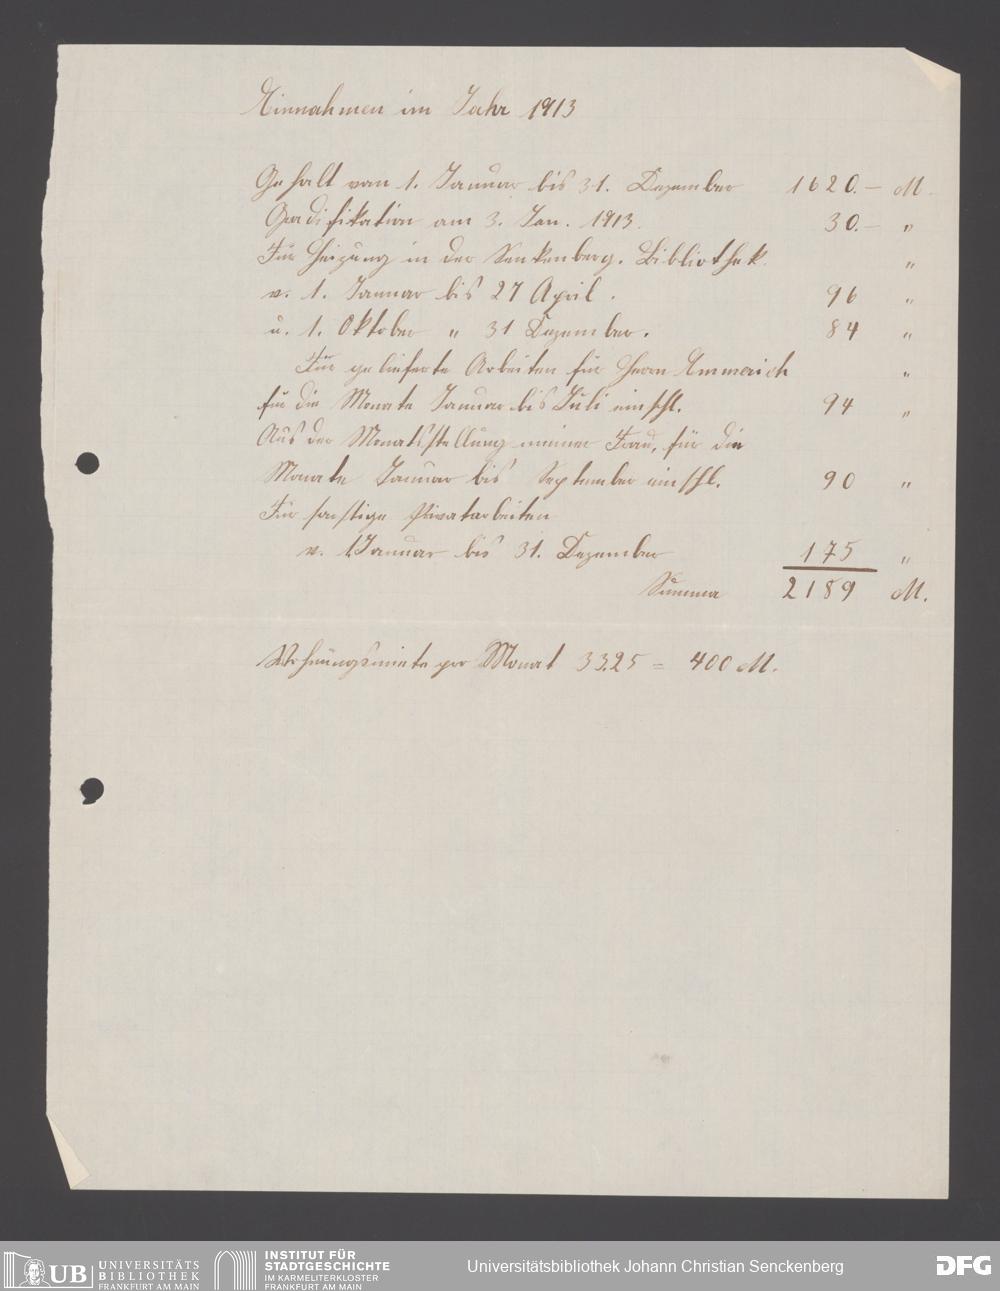 Einnahmen im Jahr 1913
Gehalt vom 1. Januar bis 31. Dezember 1620.— M.
Gradifikation am 3. Jan. 1913. 30.— "
Für Heizung in der Senkenberg. Bibliothek. "
v. 1. Januar bis 27 April. 96 "
u. 1. Oktober " 31 Dezember. 84 "
Für gelieferte Arbeiten für Herrn Emmerich "
für die Monate Januar bis Juli einschl. 94 "
Aus der Monatsstellung meiner Frau, für die
Monate Januar bis September einschl. 90 "
Für sonstige Privatarbeiten
v. 1. Januar bis 31. Dezember 175 "
Summa 2189 M.
Wohnungsmiete per Monat 33.25 = 400 M.
UB UNIVERSITÄTS
BIBLIOTHEK
FRANKFURT AM MAIN
INSTITUT FÜR
STADTGESCHICHTE
IM KARMELITERKLOSTER
FRANKFURT AM MAIN
Universitätsbibliothek Johann Christian Senckenberg
DFG